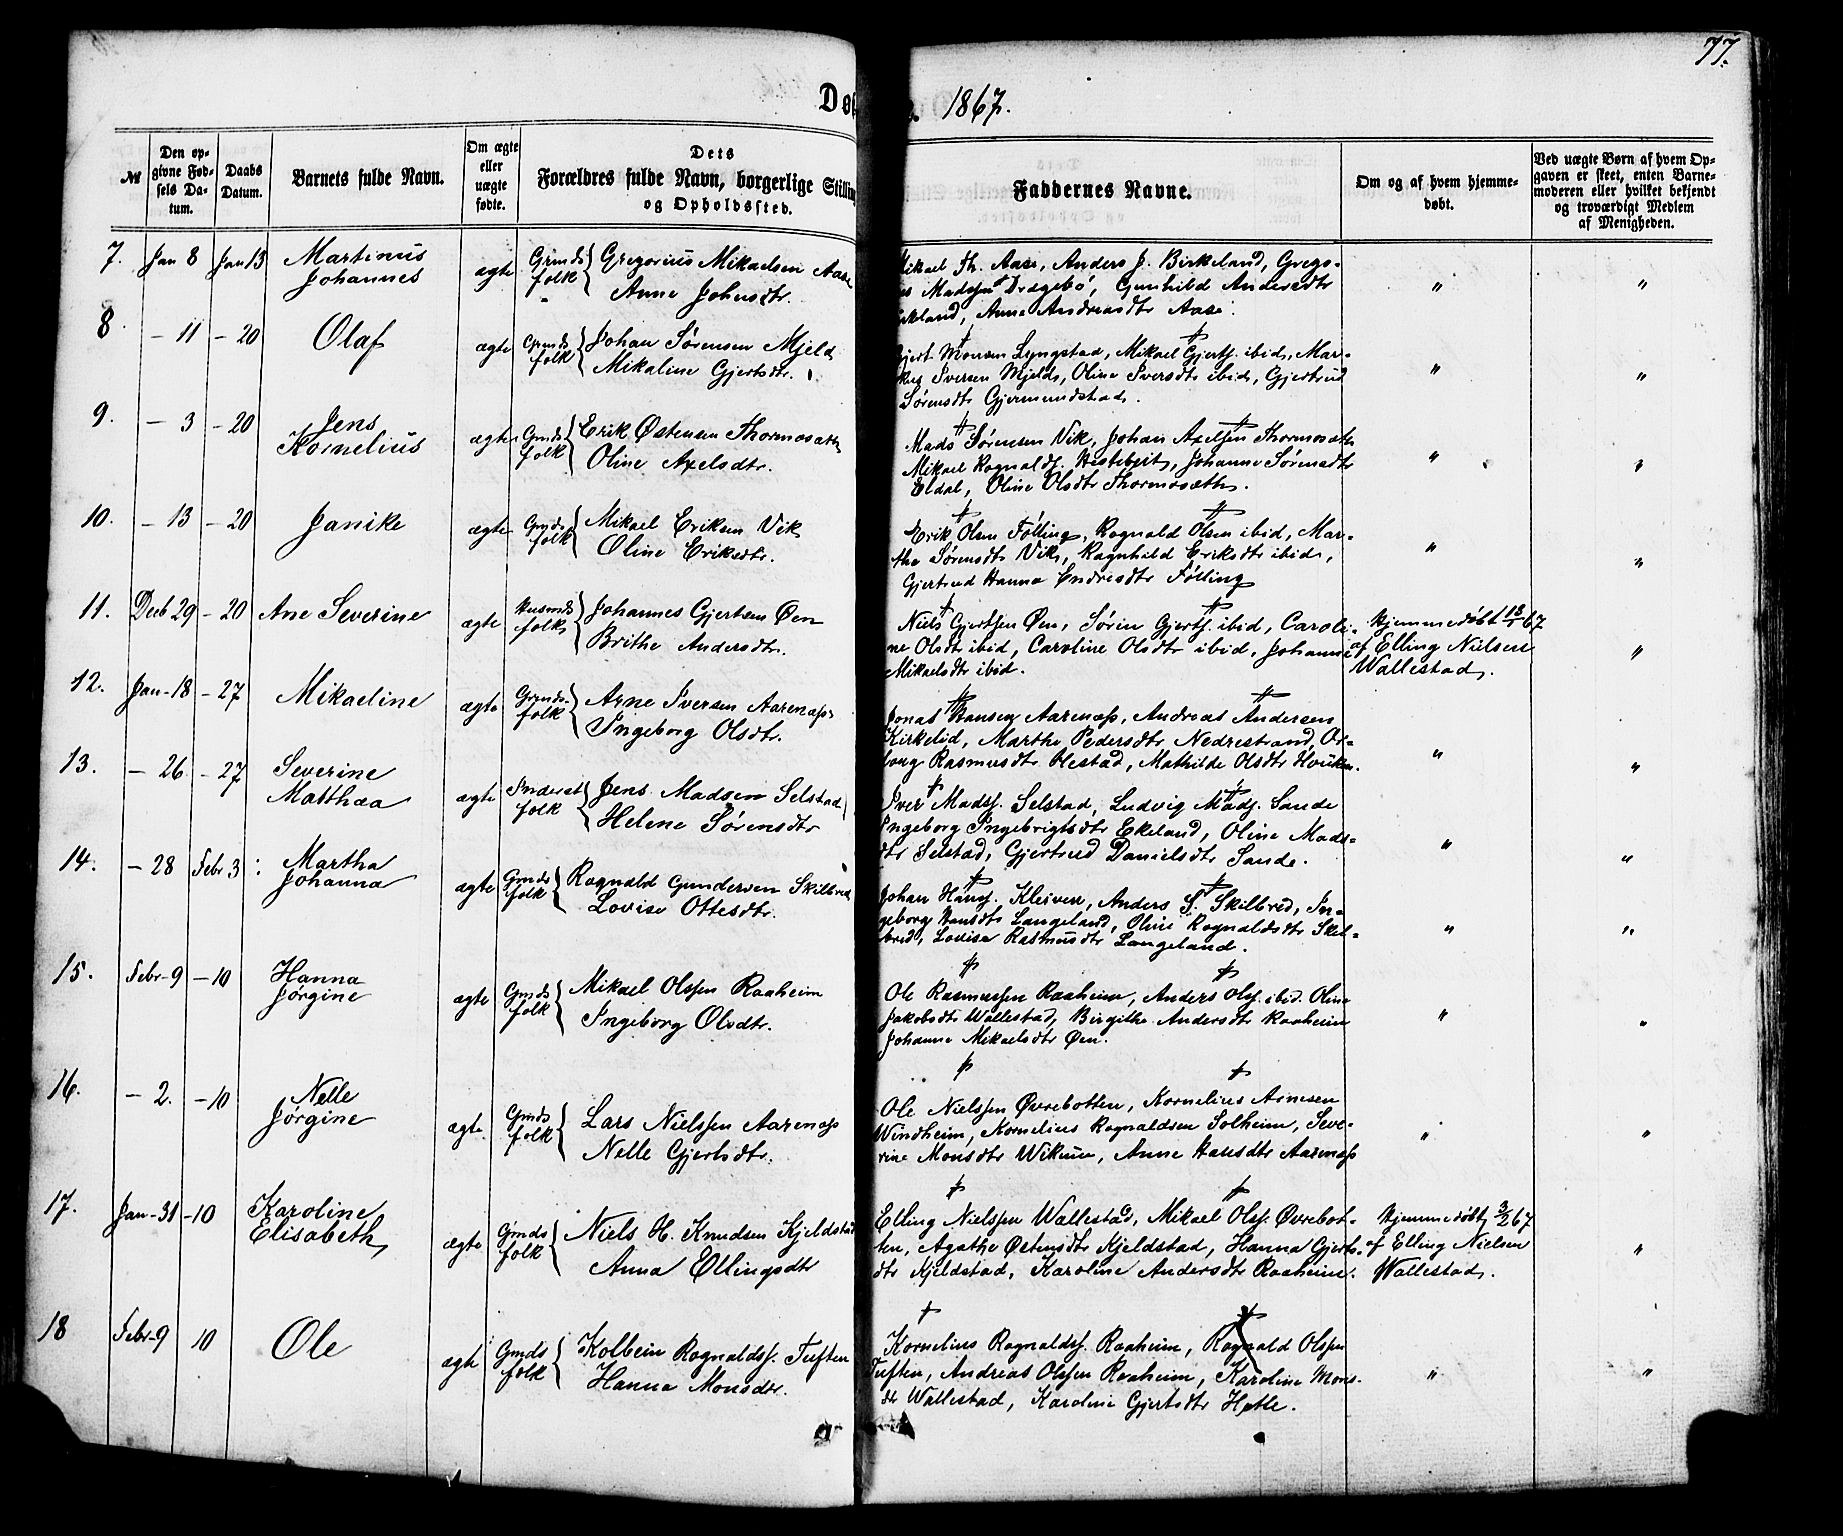 77.
Døb
1867.
№
Den op-
givne Fød-
sels Da-
tum.
Daabs
Datum.
Barnets fulde Navn.
Om ægte
eller
uægte
fødte.
Dets
Forældres fulde Navn, borgerlige Stilling
og Opholdssted.
Faddernes Navne.
Om og af hvem hjemme-
døbt.
Ved uægte Børn af hvem Op-
gaven er skeet, enten Barne-
moderen eller hvilket bekjendt
og troværdigt Medlem
af Menigheden.
7. Jan 8 Jan 13 Martinus
Johannes
ægte
Grmds
folk
Gregorius Mikaelsen Aase
Anne Johnsdtr.
Mikael Th. Aase, Anders J. Birkeland, Grego-
us Madssen Drægebø, Gunhild Andersdtr
rkeland, Anne Andreasdtr Aase.
" "
8. – 11 – 20 Olaf
ægte
Grmds
folk
Johan Sørensen Mjeld
Mikaline Gjertsdtr.
Gjert Monsen Lyngstad, Mikael Gjertss. ibid, Mar-
kus Iversen Mjeld, Oline Iversdtr ibid, Gjertrud
Sørensdtr Gjermundstad.
" "
9. – 3 – 20 Jens
Kornelius
ægte
Gmds
folk
Erik Østensen Thormosæth
Oline Axelsdtr.
Mads Sørensen Vik, Johan Axelsen Thormosæth
Mikael Rognalds. Hestebeit, Johanne Sørensdtr
Eldal, Oline Olsdtr Thormosæth.
" "
10. – 13 – 20 Janike
ægte
Gmds
folk
Mikael Eriksen Vik
Oline Eriksdtr.
Erik Olsen Følling, Rognald Olsen ibid, Mar-
the Sørensdtr Vik, Ragnhild Eriksdtr ibid,
Gjertrud Hanna Endresdtr Følling
" "
11. Decb 29 – 20 Ane Severine
ægte
Husmds
folk
Johannes Gjertsen Øen
Brithe Andersdtr.
Niels Gjertssen Øen, Søren Gjerts. ibid, Caroli-
ne Olsdtr ibid, Caroline Olsdtr ibid, Johanne
Mikaelsdtr ibid.
Hjemmedøbt 13/1 67
af Elling Nielsen
Wallestad.
"
12. Jan – 18 – 27 Mikaeline
ægte
Grmds.
folk
Arne Iversen Aarenæs
Ingeborg Olsdtr.
Jonas Hansen Aarenæs, Andreas Andersen
Kirkelid, Marthe Pedersdtr Nedrestrand, Or-
borg Rasmusdtr Olestad, Mathilde Olsdtr Hviken.
" "
13. – 26 – 27 Severine
Matthæa
ægte
Inderst
folk
Jens Madsen Selstad
Helene Sørensdtr
Iver Madss. Selstad, Ludvig Mads. Sande
Ingeborg Ingebrigtsdtr Ekeland, Oline Mads-
dtr Selstad, Gjertrud Danielsdtr Sande.
" "
14. – 28 Febr 3 Martha
Johanna
ægte
Gmds
folk
Rognald Gundersen Skilbred
Lovise Ottesdtr.
Johan Hanss. Kleiven, Anders S. Skilbred, In-
geborg Hansdtr Langeland, Oline Rognaldsdtr Skil-
bred, Lovise Rasmusdtr Langeland.
" "
15. Febr – 9 – 10 Hanna
Jørgine
ægte
Gmds
folk
Mikael Olssen Raaheim
Ingeborg Olsdtr.
Ole Rasmussen Raaheim, Anders Olss. ibid. Oline
Jakobsdtr Wallestad, Birgithe Andersdtr Raaheim
Johanne Mikaelsdtr Øen.
" "
16. – 2. – 10 Nelle
Jørgine
ægte.
Gmds
folk
Lars Nielssen Aarenæs
Nelle Gjertsdtr.
Ole Nielssen Øvrebotten, Kornelius Arnesen
Windheim, Kornelius Rognaldsen Solheim, Seve-
rine Monsdtr Wikum, Anne Hansdtr Aarenæs
" "
17. Jan – 31 – 10 Karoline
Elisabeth
ægte
Gmds
folk
Niels H. Knudsen Kjeldstad
Anna Ellingsdtr
Elling Nielssen Wallestad, Mikael Olss. Øvrebot-
ten, Agathe Østensdtr Kjeldstad, Hanna Gjerts-
dtr Kjeldstad, Karoline Andersdtr Raaheim.
Hjemmedøbt 3/2 67
af Elling Nielsen
Wallestad.
"
18 Febr – 9 10 Ole
ægte
Gmds
folk
Kolbein Rognaldss. Tuften
Hanna Monsdtr.
Kornelius Rognaldss. Raaheim, Rognald Olssen
Tuften, Andreas Olssen Raaheim, Karoline Mons-
dtr Wallestad, Karoline Gjertsdtr Hatle.
" "